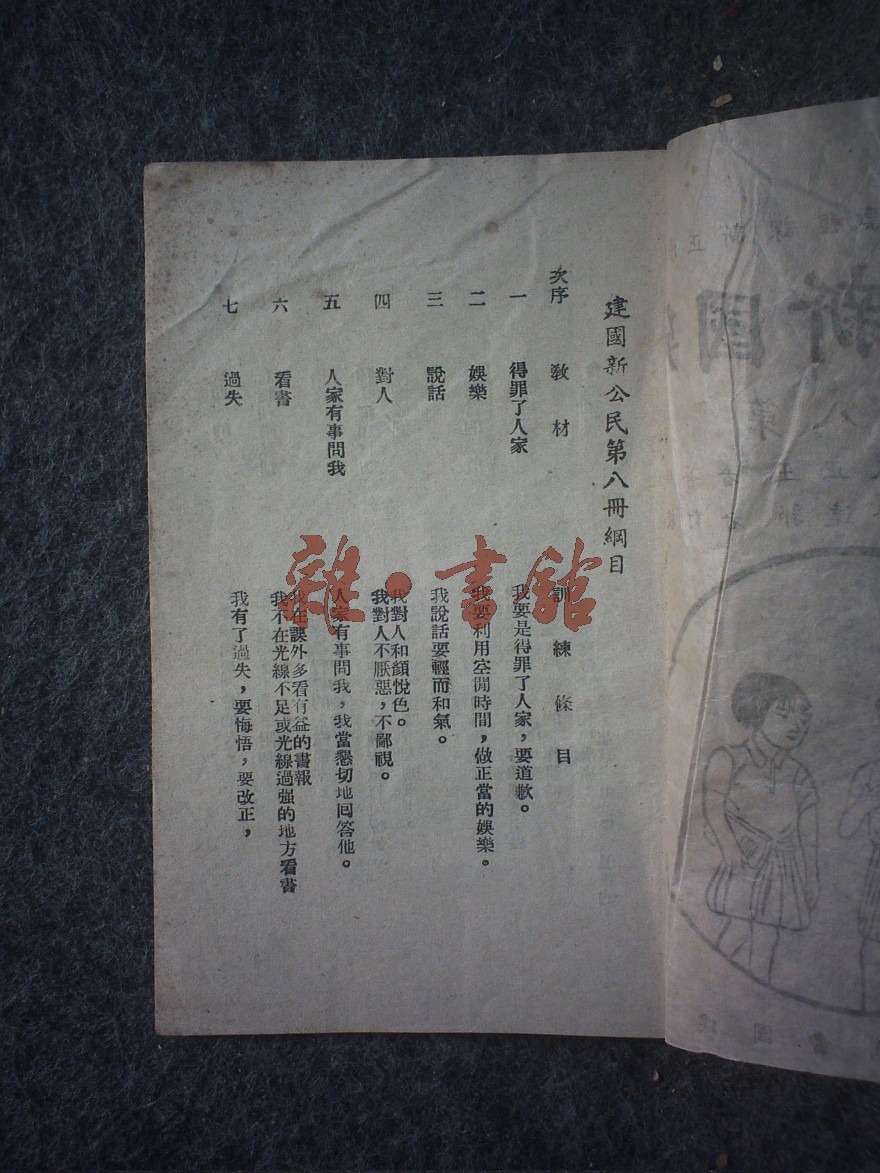 建國新公民第八冊綱目
次序 教材 訓練條目
一 得罪了人家 我要是得罪了人家，要道歉。
二 娛樂 我要利用空閒時間，做正當的娛樂。
三 說話 我說話要輕而和氣。
四 對人 我對人和顏悅色。
我對人不厭惡，不鄙視。
五 人家有事問我 人家有事問我，我當懇切地回答他。
六 看書 我在課外多看有益的書報
我不在光線不足或光線過強的地方看書
七 過失 我有了過失，要悔悟，要改正，
雜·書館